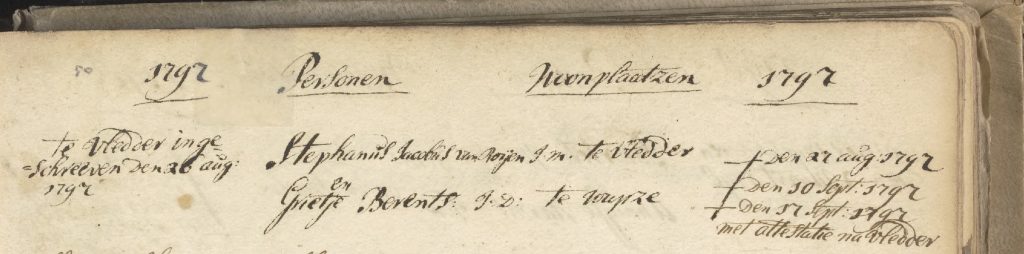 50
1797 Personen Woonplaatzen 1797
te Vledder inge=
=schreeven den 26 aug:
1797
Stephanus Jacobus van Roijen J. m. te Vledder
en
Grietje Berents. J. D: te wapze
den 27 aug: 1797
den 10 Sept: 1797
den 17 Sept: 1797
met attestatie na Vledder